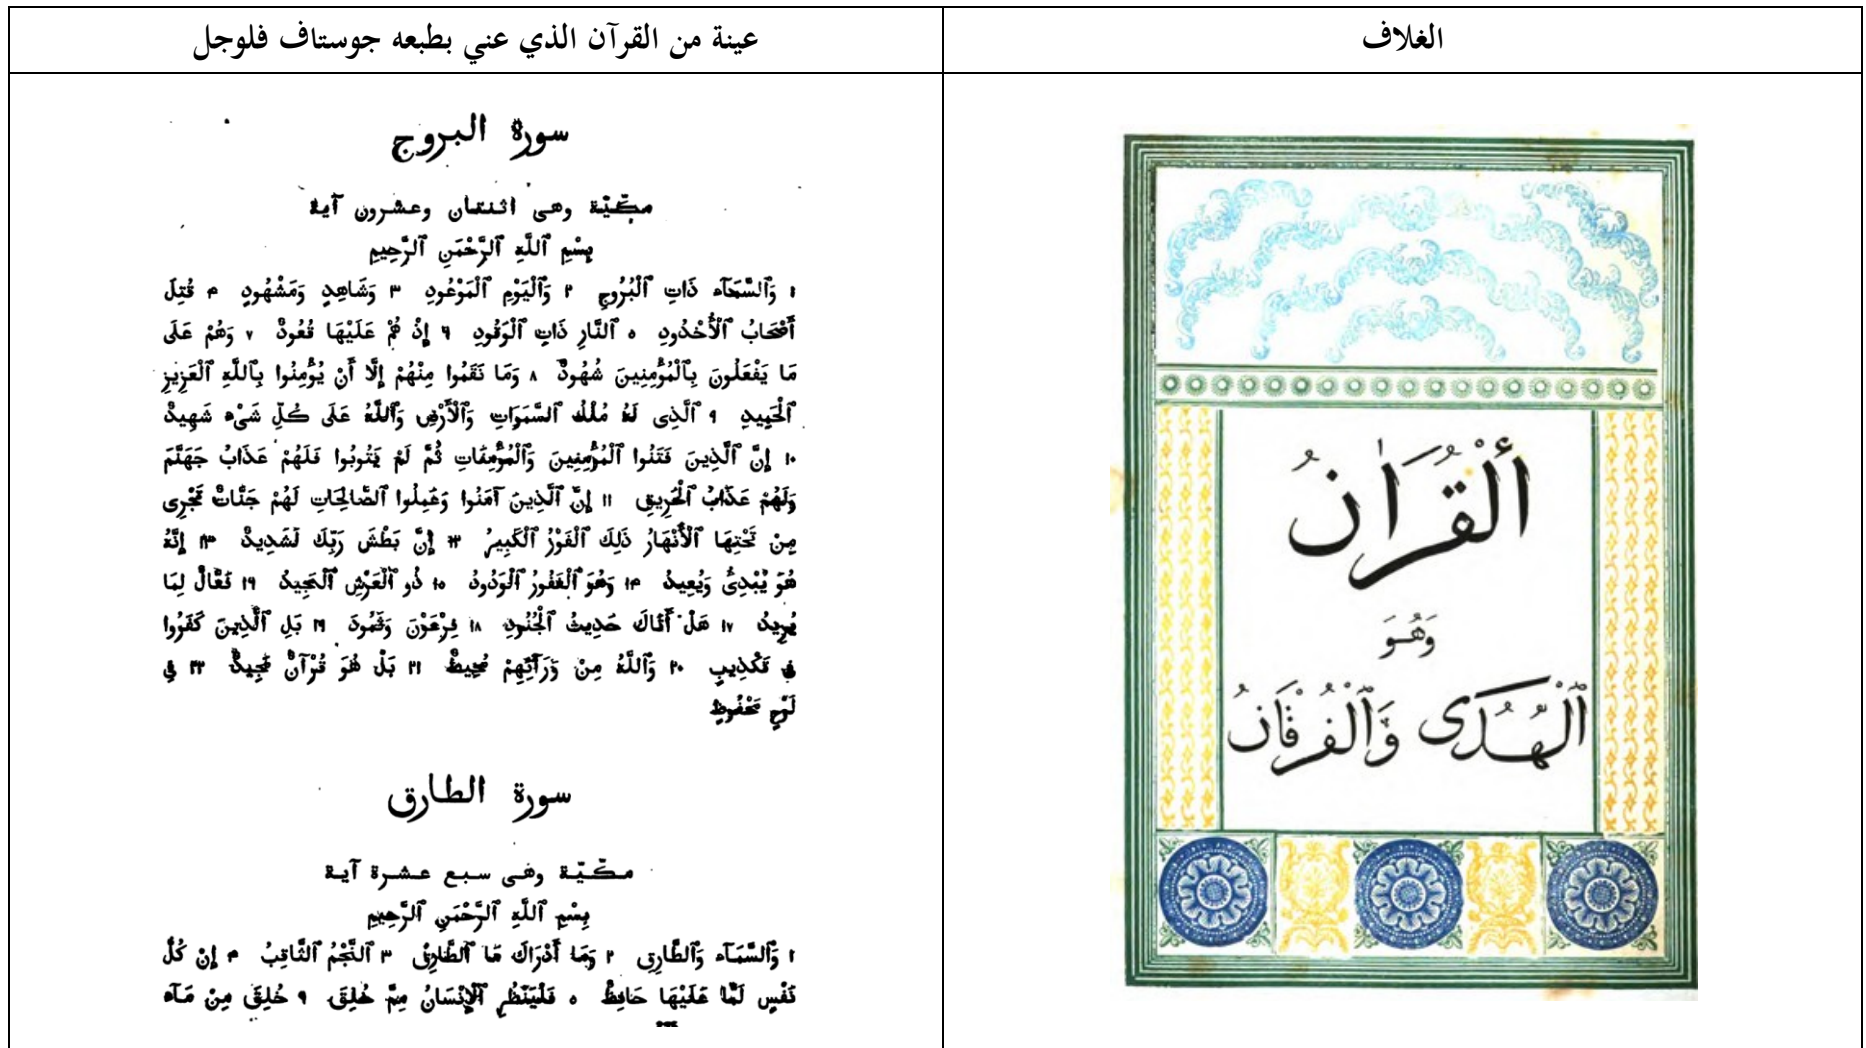 الغلاف
عينة من القرآن الذي عني بطبعه جوستاف فلوجل
أَلْقُرَاٰنُ
وَهُوَ
ٱلْهُدَى وَٱلْفُرْقَانُ
سورة البروج
مكّيّة وهى اثنتان وعشرون آية
بِسْمِ ٱللَّهِ ٱلرَّحْمَنِ ٱلرَّحِيمِ
١ وَٱلسَّمَآء ذَاتِ ٱلْبُرُوجِ ٢ وَٱلْيَوْمِ ٱلْمَوْعُودِ ٣ وَشَاهِدٍ وَمَشْهُودٍ ۴ قُتِلَ
أَصْحَابُ ٱلْأُخْدُودِ ٥ ٱلنَّارِ ذَاتِ ٱلْوَقُودِ ٦ إِذْ هُمْ عَلَيْهَا قُعُودٌ ٧ وَهُمْ عَلَى
مَا يَفْعَلُونَ بِٱلْمُؤْمِنِينَ شُهُودٌ ٨ وَمَا نَقَمُوا مِنْهُمْ إِلَّا أَنْ يُؤْمِنُوا بِٱللَّهِ ٱلْعَزِيزِ
ٱلْحَمِيدِ ٩ ٱلَّذِى لَهُ مُلْكُ ٱلسَّمَوَاتِ وَٱلْأَرْضِ وَٱللَّهُ عَلَى كُلِّ شَىْء شَهِيدٌ
١٠ إِنَّ ٱلَّذِينَ فَتَنُوا ٱلْمُؤْمِنِينَ وَٱلْمُؤْمِنَاتِ ثُمَّ لَمْ يَتُوبُوا فَلَهُمْ عَذَابُ جَهَنَّمَ
وَلَهُمْ عَذَابُ ٱلْحَرِيقِ ١١ إِنَّ ٱلَّذِينَ آمَنُوا وَعَمِلُوا ٱلصَّالِحَاتِ لَهُمْ جَنَّاتٌ تَجْرِى
مِنْ تَحْتِهَا ٱلْأَنْهَارُ ذَلِكَ ٱلْفَوْزُ ٱلْكَبِيرُ ١٢ إِنَّ بَطْشَ رَبِّكَ لَشَدِيدٌ ١٣ إِنَّهُ
هُوَ يُبْدِئُ وَيُعِيدُ ١۴ وَهُوَ ٱلْغَفُورُ ٱلْوَدُودُ ١٥ ذُو ٱلْعَرْشِ ٱلْمَجِيدُ ١٦ فَعَّالٌ لِمَا
يُرِيدُ ١٧ هَلْ أَتَاكَ حَدِيثُ ٱلْجُنُودِ ١٨ فِرْعَوْنَ وَثَمُودَ ١٩ بَلِ ٱلَّذِينَ كَفَرُوا
فِى تَكْذِيبٍ ٢٠ وَٱللَّهُ مِنْ وَرَآئِهِمْ مُحِيطٌ ٢١ بَلْ هُوَ قُرْآنٌ مَجِيدٌ ٢٢ فِى
لَوْحٍ مَحْفُوظٍ
سورة الطارق
مكّيّة وهى سبع عشرة آية
بِسْمِ ٱللَّهِ ٱلرَّحْمَنِ ٱلرَّحِيمِ
١ وَٱلسَّمَآء وَٱلطَّارِقِ ٢ وَمَا أَدْرَاكَ مَا ٱلطَّارِقُ ٣ ٱلنَّجْمُ ٱلثَّاقِبُ ۴ إِنْ كُلُّ
نَفْسٍ لَمَّا عَلَيْهَا حَافِظٌ ٥ فَلْيَنْظُرِ ٱلْإِنْسَانُ مِمَّ خُلِقَ ٦ خُلِقَ مِنْ مَآء